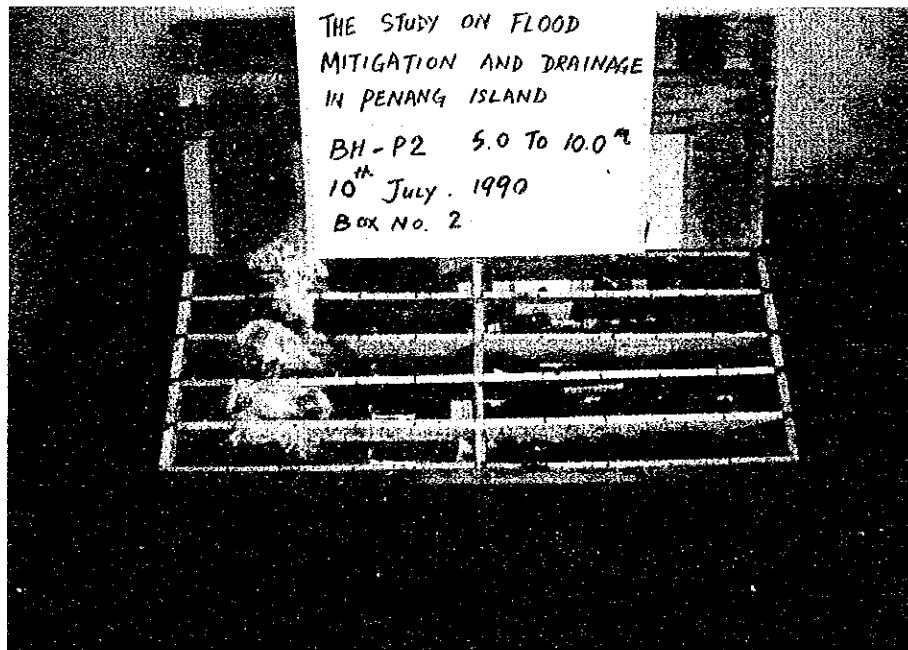 THE STUDY ON FLOOD
MITIGATION AND DRAINAGE
IN PENANG ISLAND
BH-P2 5.0 To 10.0 m
10th July. 1990
Box No. 2